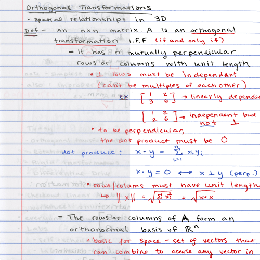 Orthogonal Transformations
- spacial relationships in 3D
Def - an nxn matrix A is an orthogonal
transformation IFF (if and only if)
• it has n mutually perpendicular
rows or columns with unit length
rows must be independent
(can't be multiples of each other)
ex [1 2 / 3 6] → linearly dependent
→ independent but
not ⊥
• to be perpendicular,
the dot product must be 0
dot product: x·y = Σ xᵢyᵢ
x·y = 0 ⟷ x ⊥ y (perp)
• rows/columns must have unit length
↳ ||x|| = = √x·x
- The rows or columns of A form an
orthonormal basis of ℝⁿ
basis for space - set of vectors that
can combine to create any vector in